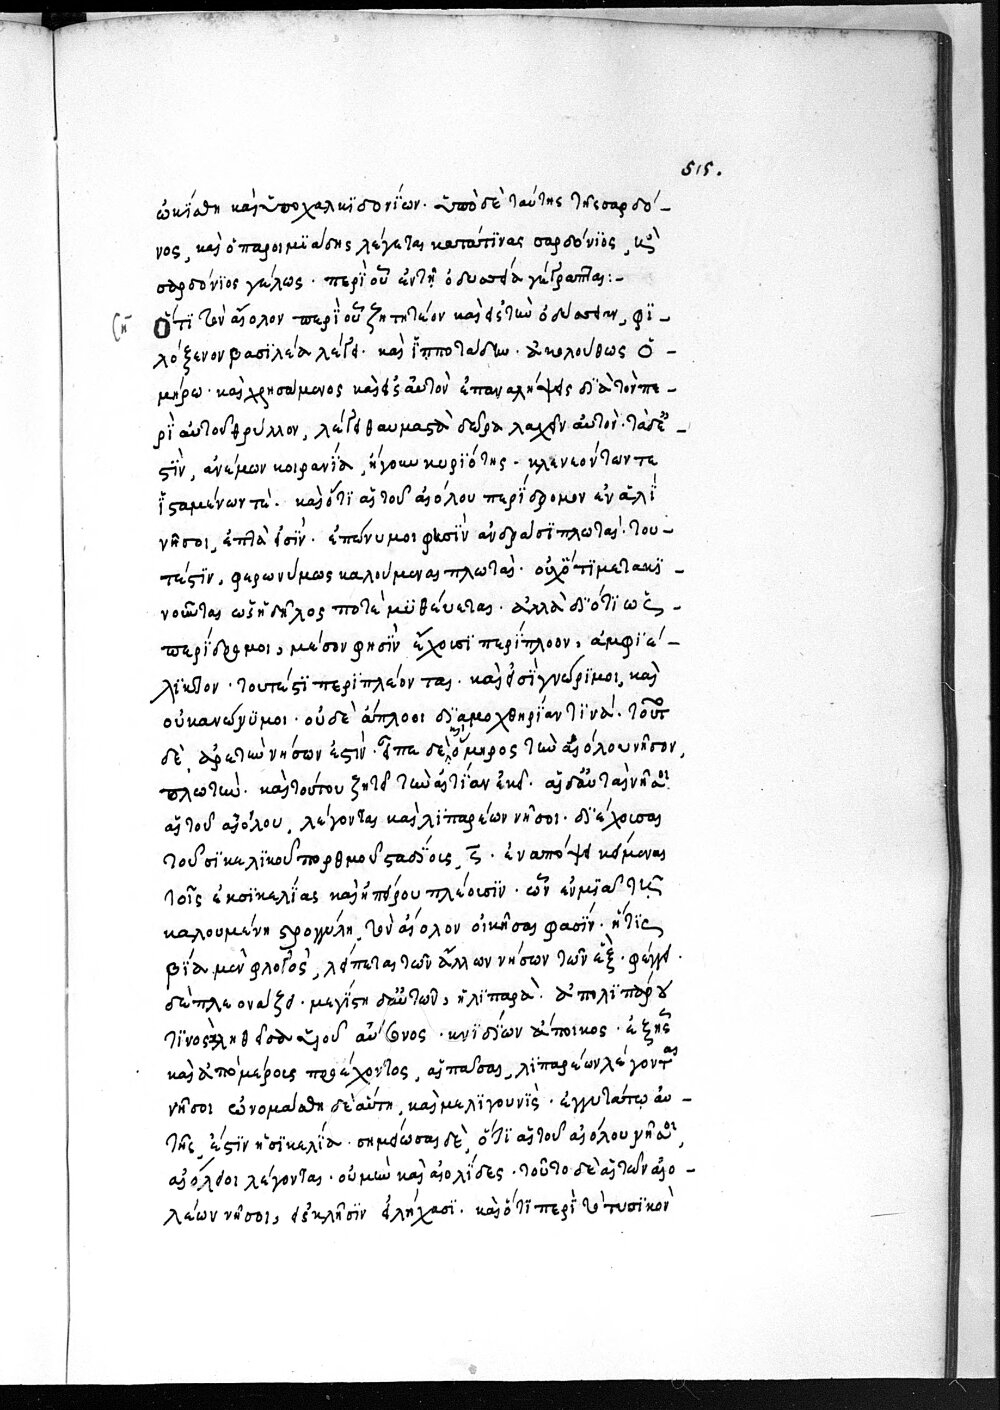 515.
ὠκίσθη καὶ ὑπὸ χαλκηδονίων. ἀπὸ δὲ ταύτης τῆς σαρδό-
νος, καὶ ὁ παροιμιώδης λέγεται κατά τινας σαρδόνιος, καὶ
σαρδόνιος γέλως. περὶ οὗ ἐν τῇ ὀδυσσείᾳ γέγραπται:-
Ὅτι τὸν αἴολον περὶ οὗ ζητητέον καὶ εἰς τὴν ὀδύσσειαν, φι-
λόξενον βασιλέα λέγει. καὶ ἱπποτάδην. ἀκολούθως ὁ-
μήρω. καὶ χρησάμενος καὶ εἰς αὐτὸν ἐπαναλήψει διὰ τὸν πε-
ρὶ αὐτοῦ θρύλλον, λέγει θαυμαστὰ δῶρα λαχεῖν αὐτόν. τὰ δέ ἐ-
στιν, ἀνέμων κοιρανία, ἤγουν κυριότης. κλονεόντων τε
ἱσταμένων τε. καὶ ὅτι αἱ τοῦ αἰόλου περίδρομον ἐν ἁλὶ
νῆσοι, ἑπτὰ εἰσίν. ἐπώνυμοι φησὶν ἀνδράσι πλωταί. του-
τέστιν, φερωνύμως καλούμεναι πλωταί. οὐχ ὅτι μετακι-
νοῦνται ὡς ἡ δῆλος ποτὲ μυθεύεται. ἀλλὰ διότι ὡς
περίδρομοι, μέσον φησὶν ἔχουσι περίπλοον, ἀμφιέ-
λικτον. τουτέστι περιπλέονται. καὶ εἰσὶ γνώριμοι, καὶ
οὐκ ἀνώνυμοι. οὐδὲ ἄπλοοι διὰ μοχθηρίαν τινά. τοῦτο
δὲ, ἀρετῶν νήσων ἐστίν. εἶπε δὲ καὶ ὅμηρος τὴν αἰόλου νῆσον,
πλωτήν. καὶ τούτου ζήτει τὴν αἰτίαν ἐκεῖ. αἱ δ' αὐταὶ νῆσοι
αἱ τοῦ αἰόλου, λέγονται καὶ λιπαρέων νῆσοι. διέχουσαι
τοῦ σικελικοῦ πορθμοῦ σταδίοις, ϛ. ἐν ἀπόψει κείμεναι
τοῖς ἐκ σικελίας καὶ ἠπείρου πλέουσιν. ὧν ἐν μιᾷ τῇ
καλουμένῃ στρογγύλῃ, τὸν αἴολον οἰκῆσαι φασίν. ἥτις
βίᾳ μὲν φλογὸς, λείπεται τῶν ἄλλων νήσων τῶν ἓξ. φέγγει
δὲ πλεονάζει. μεγίστη δ' αὐτῶν, ἡ λιπαρὰ. ἀπὸ λιπάρου
τινὸς κληθεῖσα υἱοῦ αὔσονος. κνιδίων ἄποικος. ἐξ ἧς
καὶ ἀπὸ μέρους προέχοντος, αἱ πᾶσαι, λιπαρέων λέγονται
νῆσοι ὠνομάσθη δὲ αὕτη, καὶ μελιγουνίς. ἐγγυτάτω αὐ-
τῆς, ἐστὶν ἡ σικελία. σημείωσαι δὲ, ὅτι αἱ τοῦ αἰόλου νῆσοι,
αἰόλειοι λέγονται. οὐ μὴν καὶ αἰολίδες. τοῦτο δὲ αἱ τῶν αἰο-
λέων νῆσοι, εἰς κλῆσιν εἰλήχασι. καὶ ὅτι περὶ τὸ τυσικὸν